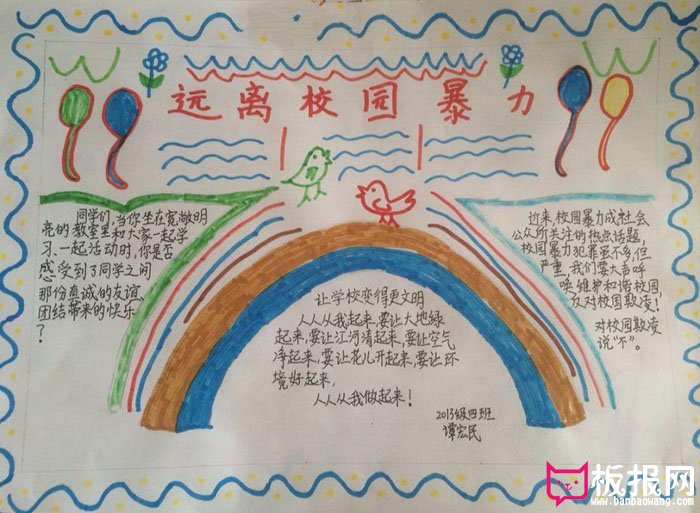 远离校园暴力
同学们,当你坐在宽敞明
亮的教室里和大家一起学
习、一起活动时,你是否
感受到了同学之间
那份真诚的友谊,
团结带来的快乐
?
让学校变得更文明
人人从我起来,要让大地绿
起来,要让江河清起来,要让空气
净起来,要让花儿开起来,要让环
境好起来,
人人从我做起来!
2013级四班
谭宏民
近来,校园暴力成社会
公众所关注的热点话题,
校园暴力犯罪虽不多,但
严重,我们要大声呼
唤,维护和谐校园,
反对校园欺凌!
对校园欺凌
说“不”。
板报网
www.banbaowang.com